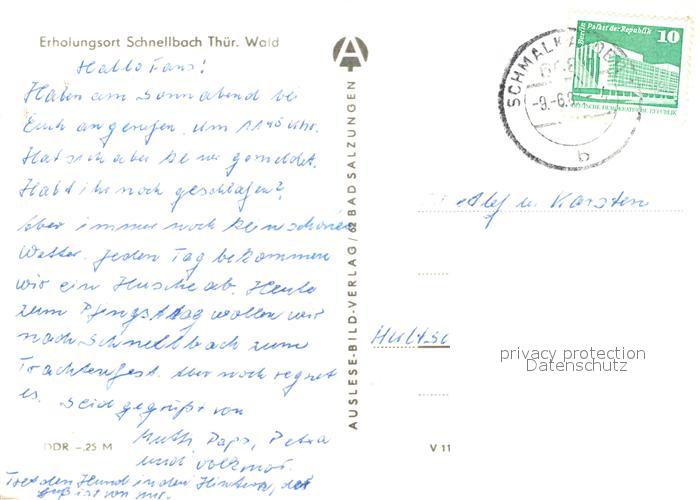 Erholungsort Schnellbach Thür. Wald
Hallo Fans!
Haben am Sonnabend bei
Euch angerufen um 11 40 Uhr.
Hat sich aber keiner gemeldet.
Habt ihr noch geschlafen?
Aber immer noch kein schönes
Wetter. Jeden Tag bekommen
wir ein Husche ab. Heute
zum Pfingsttag wollen wir
nach Schnellbach zum
Trachtenfest. Aber noch regnet
es. Seid gegrüßt von
Mutti, Paps, Petra
und Volkmar.
Tret den Hund in den Hintern, der
Gruß ist von mir.
DDR -,25 M
AUSLESE-BILD-VERLAG/62 BAD SALZUNGEN
V 11
Berlin, Palast der Republik
10
DEUTSCHE DEMOKRATISCHE REPUBLIK
SCHMALKALDEN
-9.-6.
b
u. Karsten
privacy protection
Datenschutz